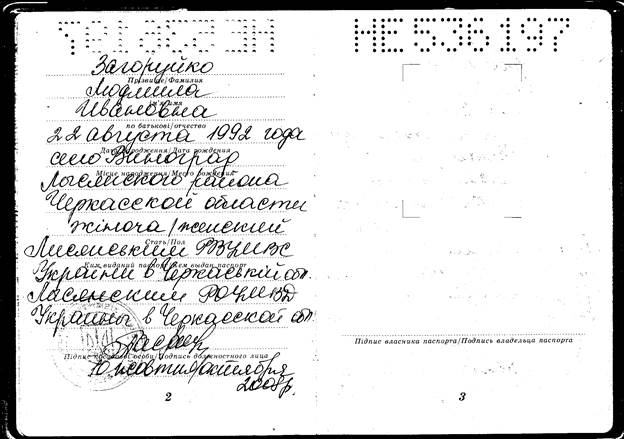 НЕ 536197
Загоруйко
Прізвище/Фамилия
Людмила
Ім'я/Имя
Ивановна
по батькові/отчество
22 августа 1992 года
Дата народження/Дата рождения
село Виноград
Місце народження/Место рождения
Лысянского района
Черкасской области
жіноча/женский
Стать/Пол
Лисянським РВУМВС
Ким виданий паспорт/Кем выдан паспорт
України в Черкаській обл.
Лысянским РОУМВД
Украины в Черкасской обл.
Підпис посадової особи/Подпись должностного лица
10 жовтня/октября
2008р.
2
НЕ 536197
Підпис власника паспорта/Подпись владельца паспорта
3